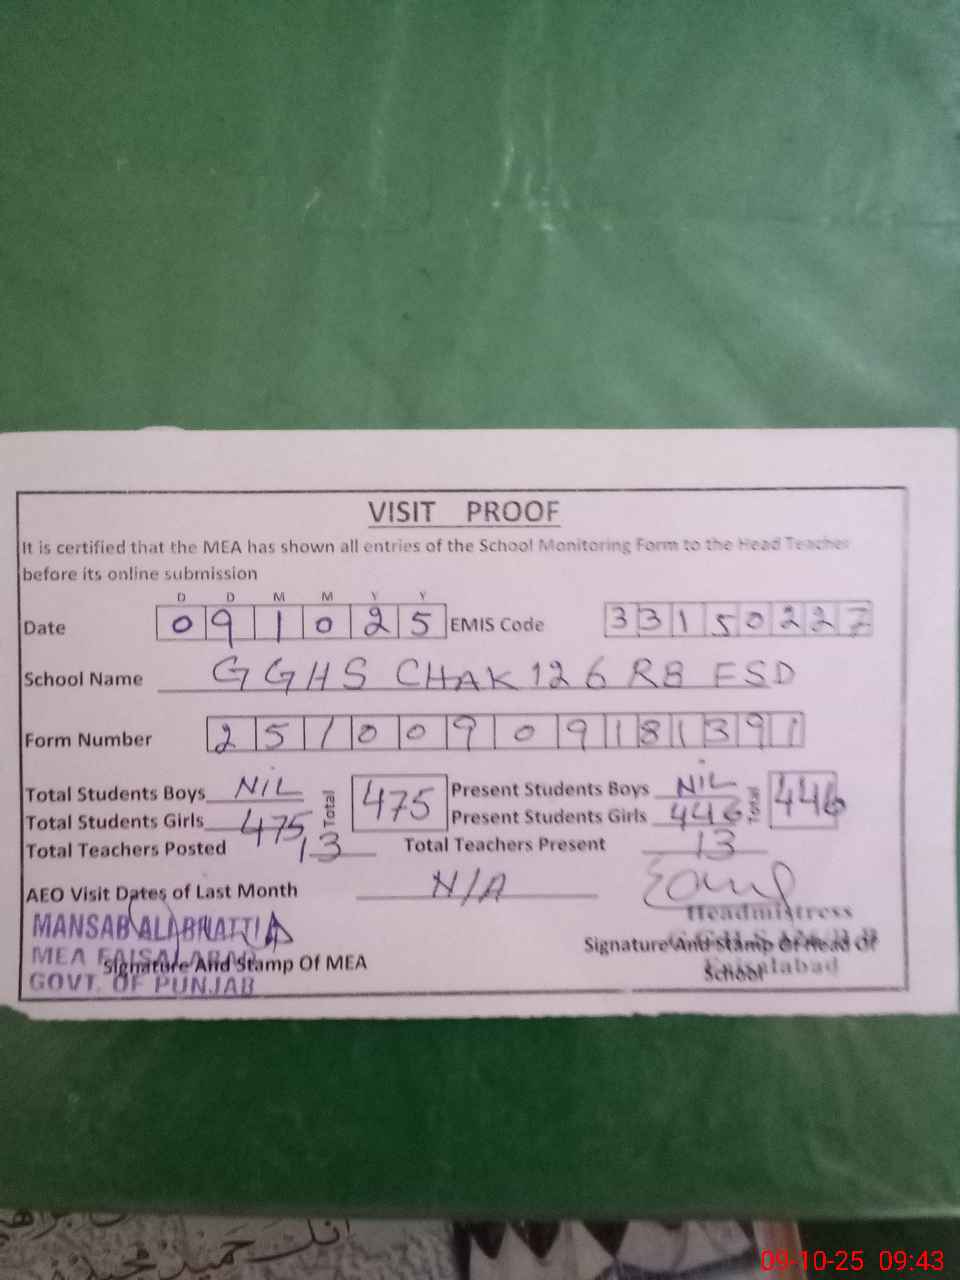 VISIT PROOF
It is certified that the MEA has shown all entries of the School Monitoring Form to the Head Teacher
before its online submission
D D M M Y Y
Date 0 9 1 0 2 5 EMIS Code 3 3 1 5 0 2 2 7
School Name GGHS CHAK 126 RB FSD
Form Number 2 5 1 0 0 9 0 9 1 8 1 3 9 1
Total Students Boys NIL Total 475 Present Students Boys NIL Total 446
Total Students Girls 475 Present Students Girls 446
Total Teachers Posted 13 Total Teachers Present 13
AEO Visit Dates of Last Month N/A
MANSAB ALI BHATTI Headmistress
MEA FAISALABAD
Signature And Stamp Of MEA Signature And Stamp Of Head Of
School Faisalabad
GOVT. OF PUNJAB
09-10-25 09:43